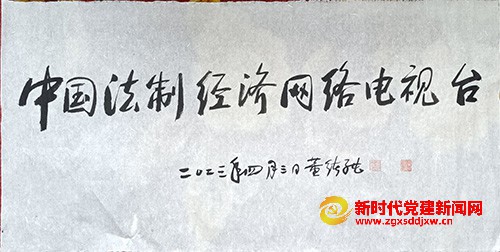 中国法制经济网络电视台
二〇二三年四月三日
新时代党建新闻网
www.zgxsddjxw.cn